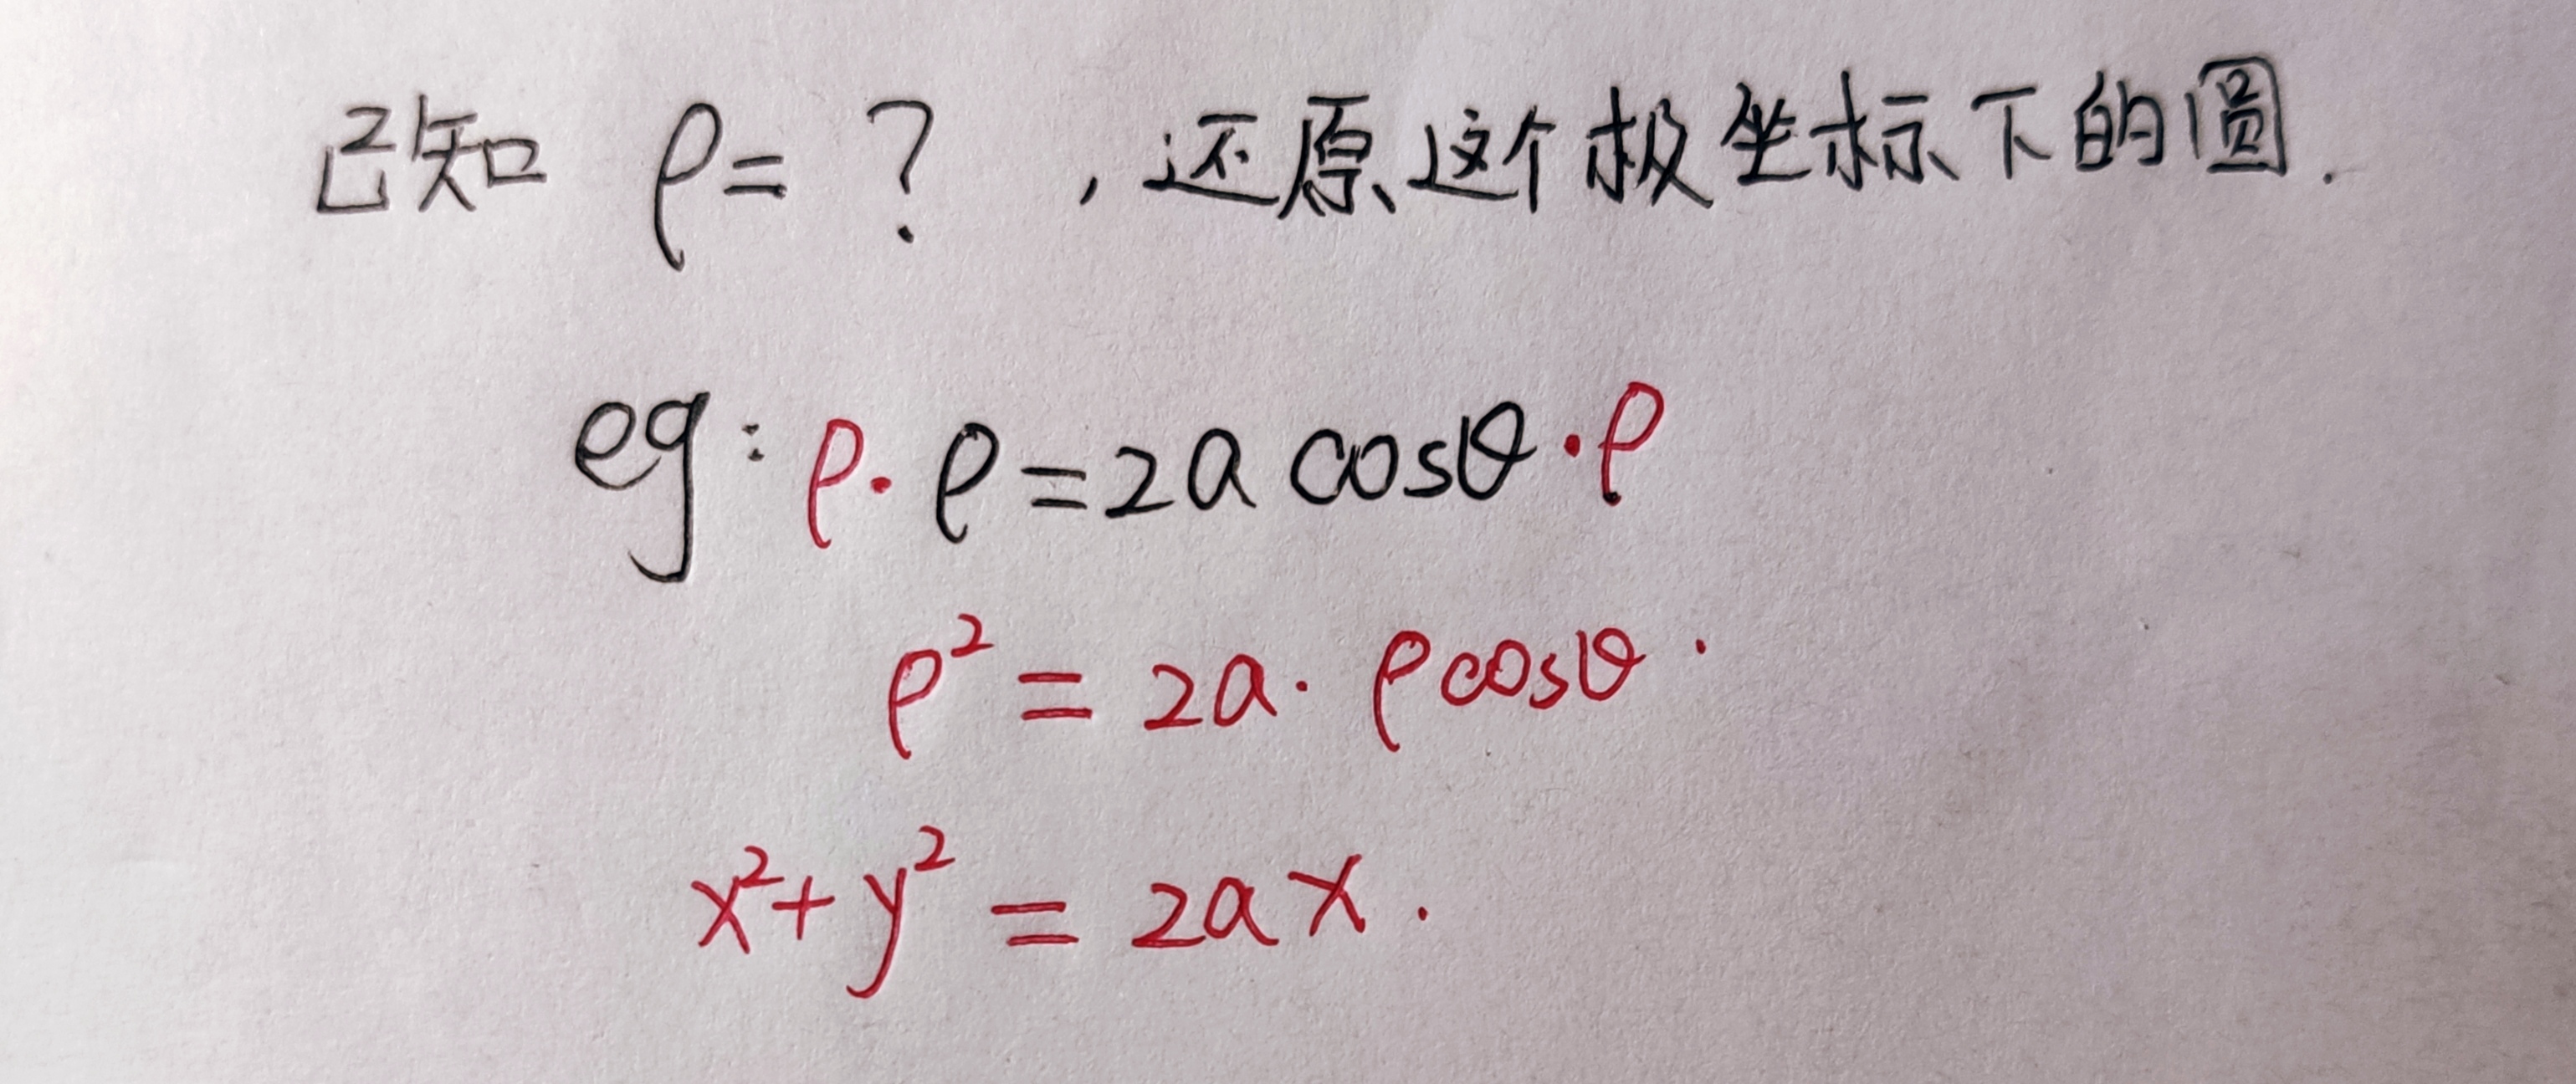 已知 ρ= ? ，还原这个极坐标下的圆.
eg: ρ·ρ=2a cosθ·ρ
ρ² = 2a· ρcosθ.
x²+y² = 2ax.